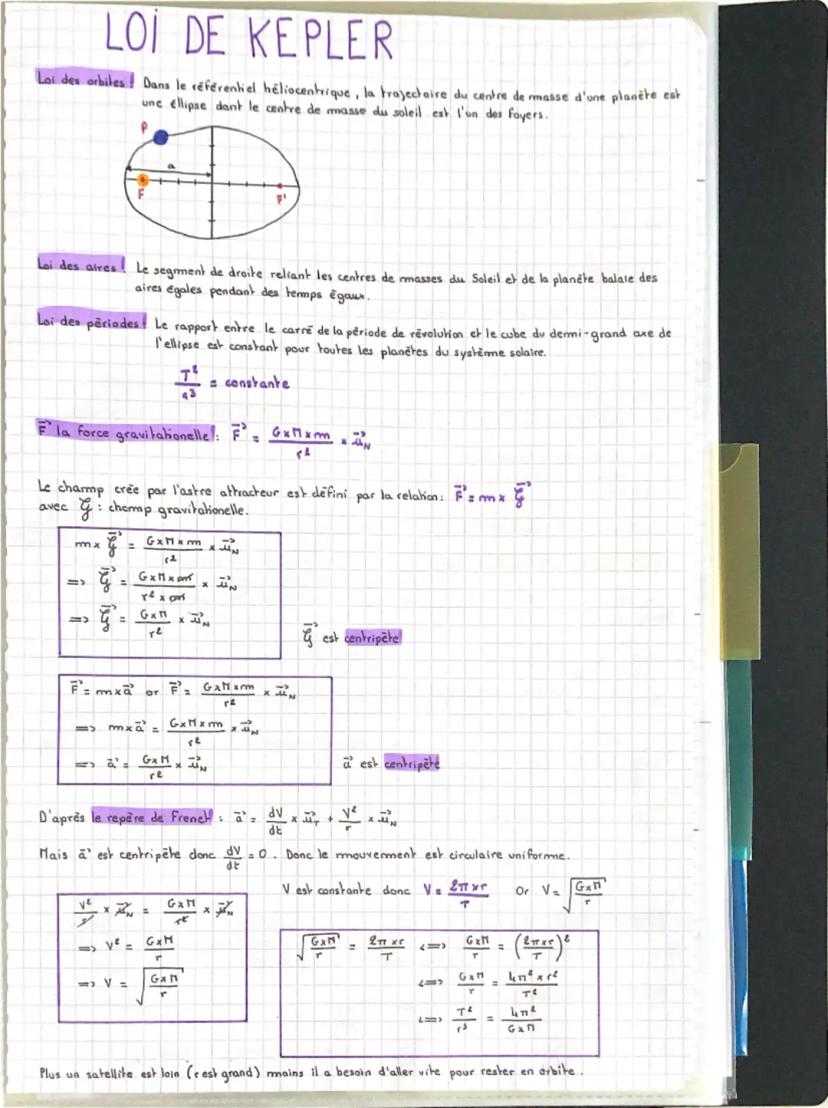 LOI DE KEPLER
Loi des orbites! Dans le référentiel héliocentrique, la trajectoire du centre de masse d'une planète est
une ellipse dont le centre de masse du soleil est l'un des foyers.
P
a
F
F'
Loi des aires! Le segment de droite reliant les centres de masses du Soleil et de la planète balaie des
aires égales pendant des temps égaux.
Loi des périodes! Le rapport entre le carré de la période de révolution et le cube du demi-grand axe de
l'ellipse est constant pour toutes les planètes du système solaire.
T²/a³ = constante
F⃗ la force gravitationelle!: F⃗ = G×M×m/r² × u⃗_N
Le champ crée par l'astre attracteur est défini par la relation: F⃗ = m × 𝒢⃗
avec 𝒢⃗ : champ gravitationelle.
m × 𝒢⃗ = G×M×m/r² × u⃗_N
=> 𝒢⃗ = G×M×m/r²×m × u⃗_N
=> 𝒢⃗ = G×M/r² × u⃗_N
𝒢⃗ est centripète!
F⃗ = m×a⃗ or F⃗ = G×M×m/r² × u⃗_N
=> m×a⃗ = G×M×m/r² × u⃗_N
=> a⃗ = G×M/r² × u⃗_N
a⃗ est centripète
D'après le repère de Frenet : a⃗ = dV/dt × u⃗_T + V²/r × u⃗_N
Mais a⃗ est centripète donc dV/dt = 0. Donc le mouvement est circulaire uniforme.
V est constante donc V = 2π×r/T Or V = √(G×M/r)
V²/r × u⃗_N = G×M/r² × u⃗_N
=> V² = G×M/r
=> V = √(G×M/r)
√(G×M/r) = 2π×r/T <=> G×M/r = (2π×r/T)²
<=> G×M/r = 4π²×r²/T²
<=> T²/r³ = 4π²/G×M
Plus un satellite est loin (r est grand) moins il a besoin d'aller vite pour rester en orbite.